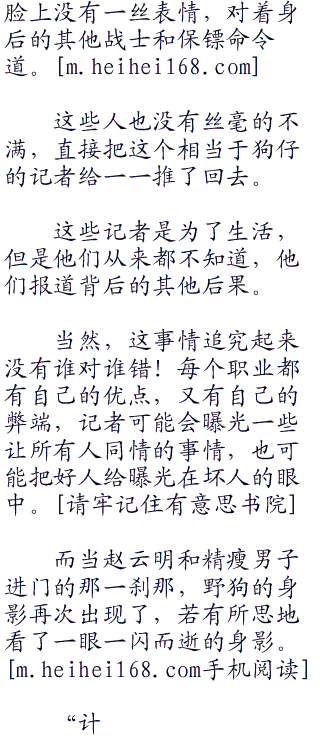 脸上没有一丝表情，对着身
后的其他战士和保镖命令
道。[m.heihei168.com]
这些人也没有丝毫的不
满，直接把这个相当于狗仔
的记者给一一推了回去。
这些记者是为了生活，
但是他们从来都不知道，他
们报道背后的其他后果。
当然，这事情追究起来
没有谁对谁错！每个职业都
有自己的优点，又有自己的
弊端，记者可能会曝光一些
让所有人同情的事情，也可
能把好人给曝光在坏人的眼
中。[请牢记住有意思书院]
而当赵云明和精瘦男子
进门的那一刹那，野狗的身
影再次出现了，若有所思地
看了一眼一闪而逝的身影。
[m.heihei168.com手机阅读]
“计